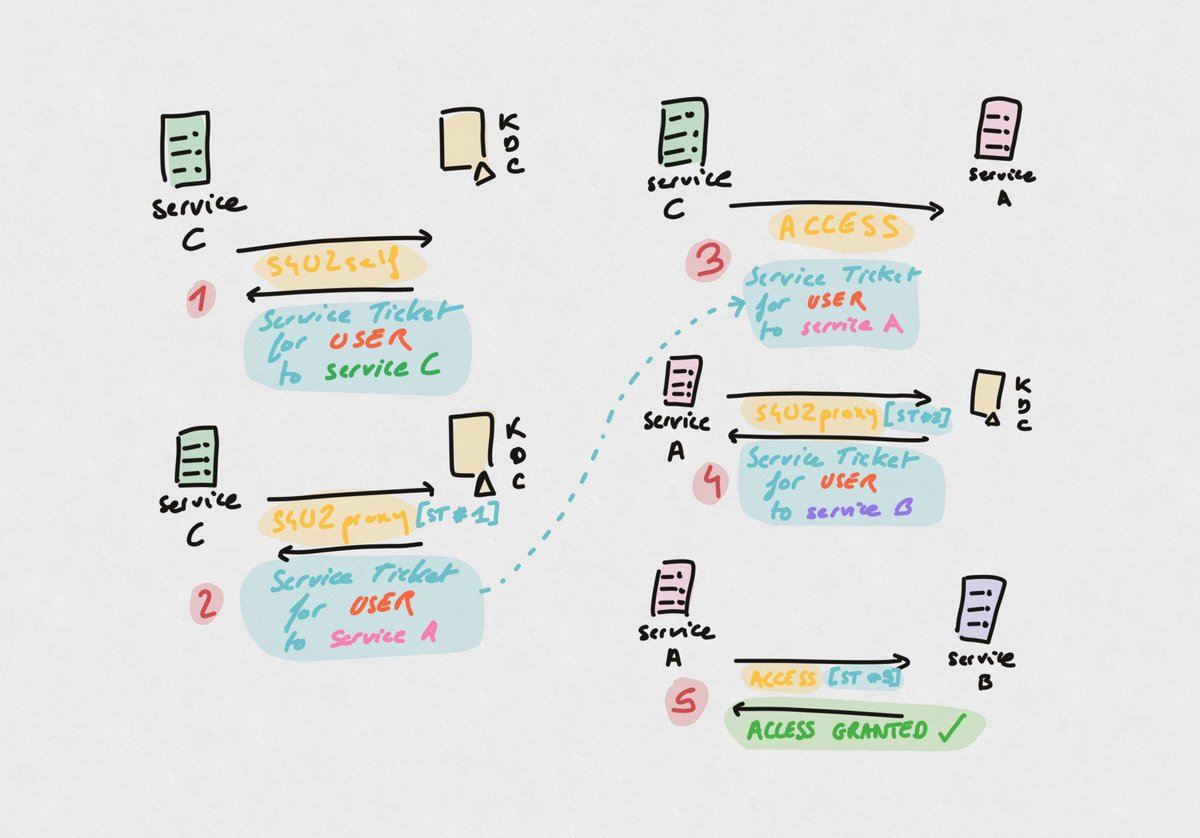 Service
C
K
D
C
S4U2self
1
Service Ticket
for USER
to service C
Service
C
K
D
C
S4U2proxy [ST #1]
2
Service Ticket
for USER
to service A
service
C
service
A
ACCESS
3
Service Ticket
for USER
to service A
service
A
K
D
C
S4U2proxy
4
Service Ticket
for USER
to service B
service
A
service
B
ACCESS
5
ACCESS GRANTED ✓